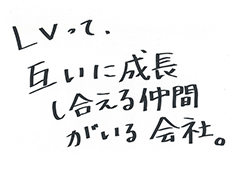 LVって、
互いに成長
し合える仲間
がいる会社。